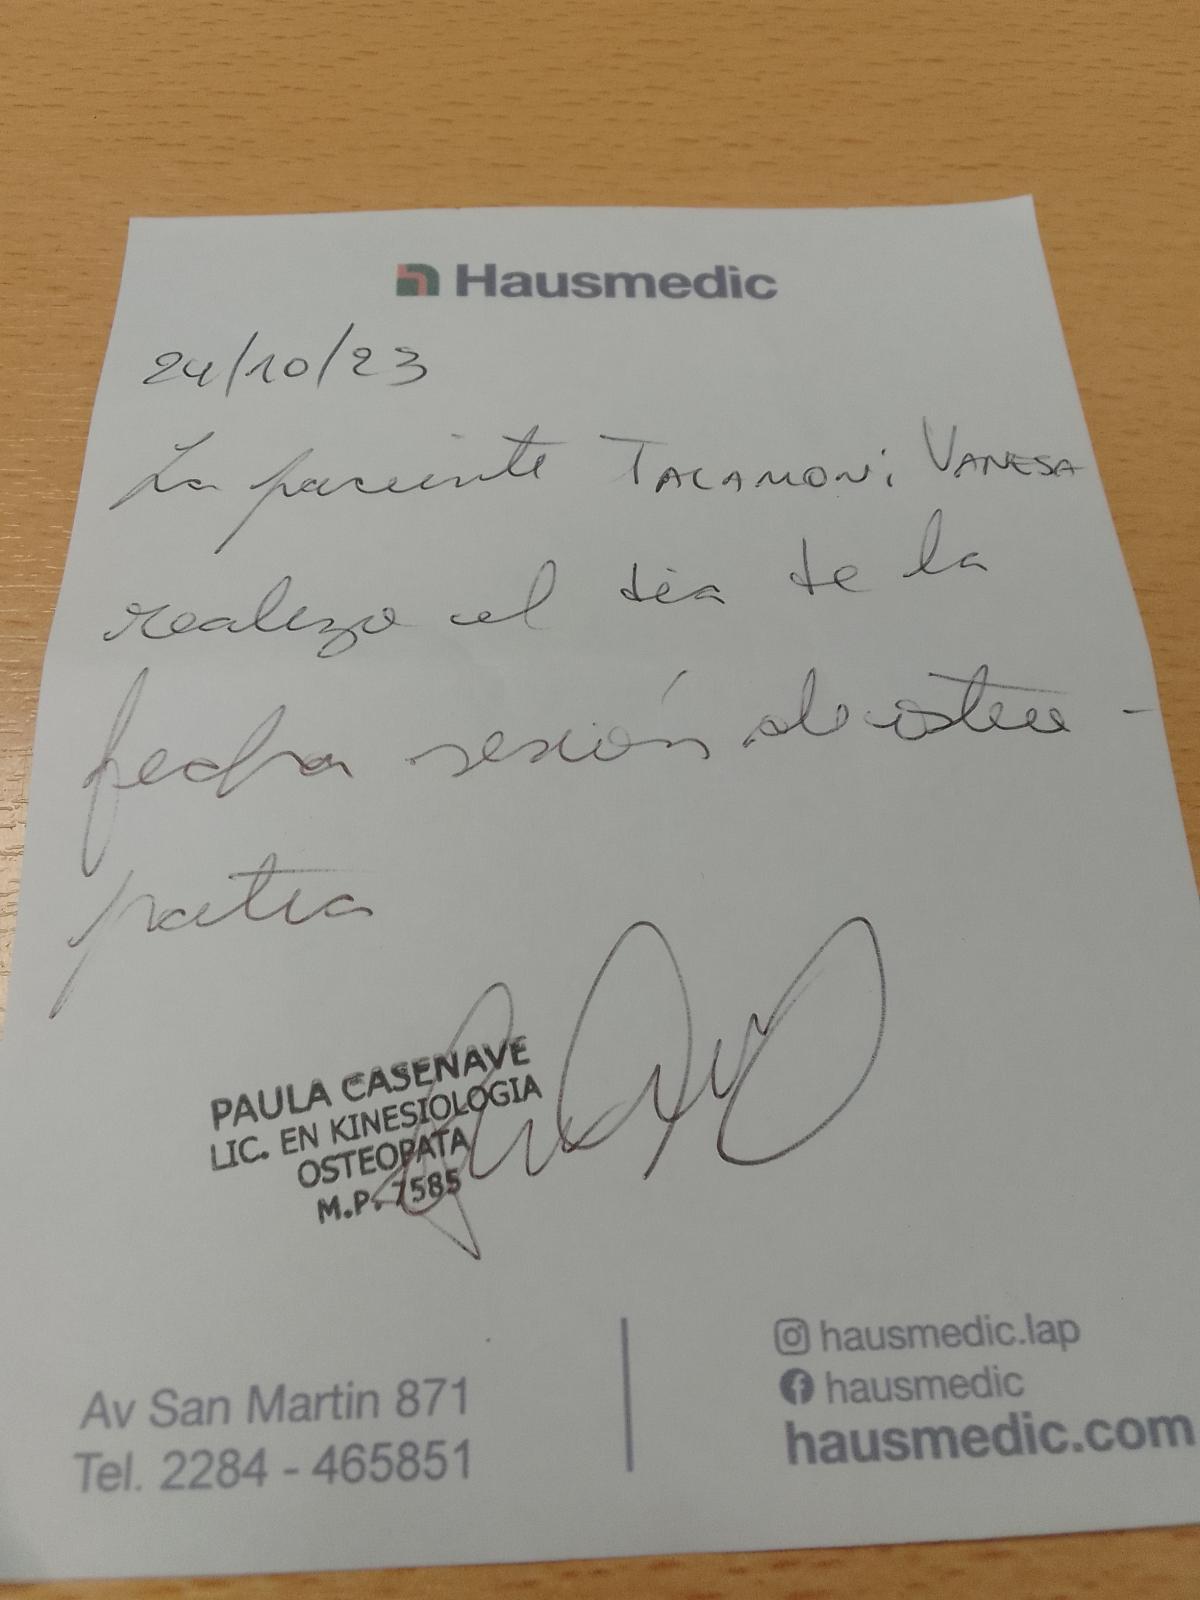 Hausmedic
24/10/23
La paciente TACAMONi VANESA
realizo el dia de la
fecha sesión de osteo -
patia
PAULA CASENAVE
LIC. EN KINESIOLOGIA
OSTEOPATA
M.P. 7585
Av San Martin 871
Tel. 2284 - 465851
hausmedic.lap
hausmedic
hausmedic.com